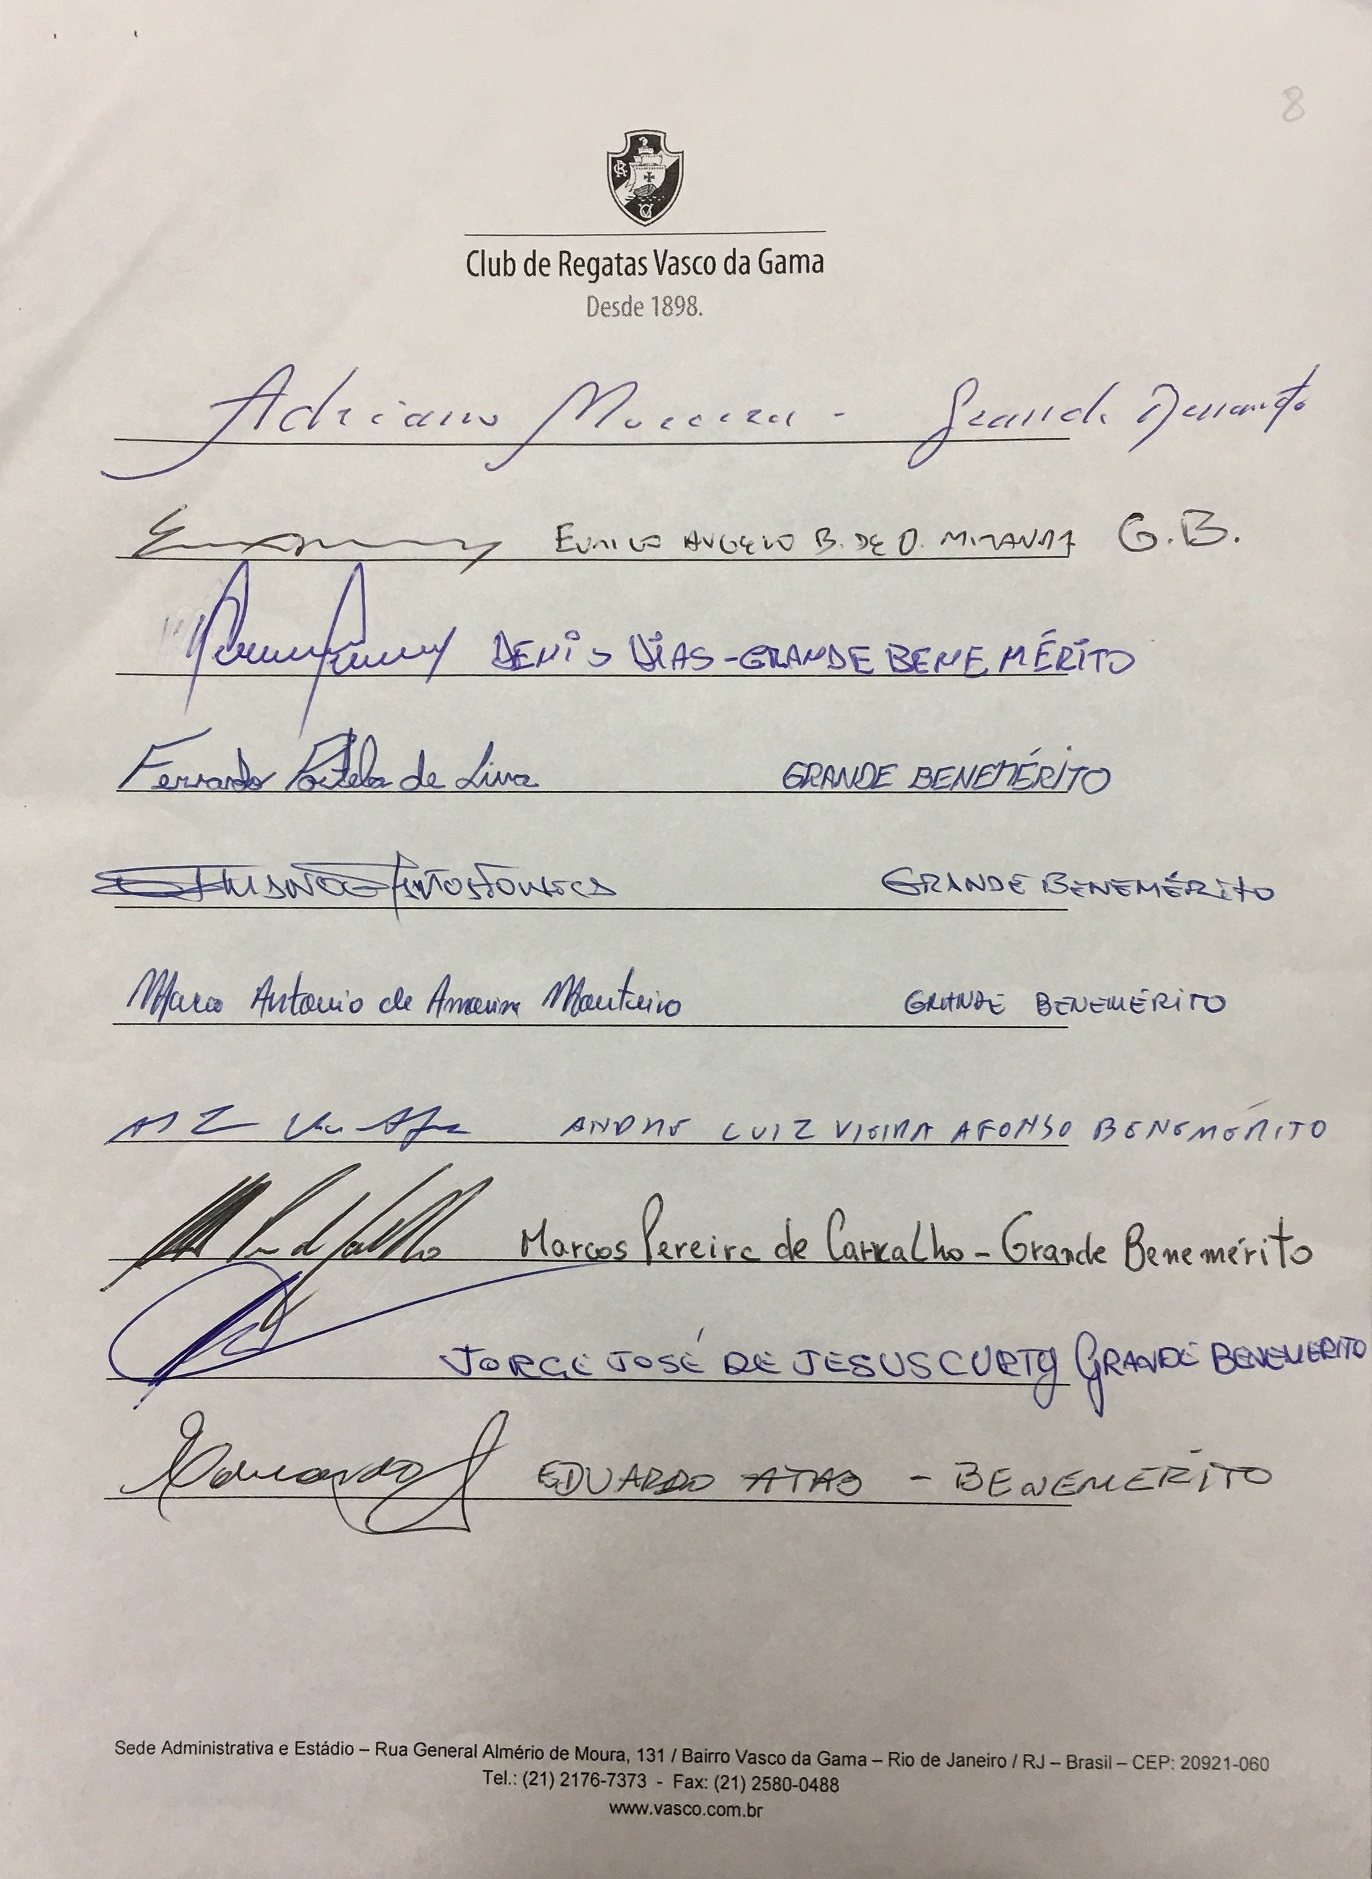 8
Club de Regatas Vasco da Gama
Desde 1898.
Adriano
EURICO ANGELO B. DE O. MIRANDA G.B.
DENIS DIAS - GRANDE BENEMÉRITO
Fernando Portela de Lima GRANDE BENEMÉRITO
GRANDE BENEMÉRITO
Marco Antonio de Amorim Monteiro GRANDE BENEMÉRITO
ANDRE LUIZ VIEIRA AFONSO BENEMÉRITO
Marcos Pereira de Carvalho - Grande Benemérito
JORGE JOSÉ DE JESUS CURTY GRANDE BENEMERITO
Eduardo EDUARDO - BENEMÉRITO
Sede Administrativa e Estádio – Rua General Almério de Moura, 131 / Bairro Vasco da Gama – Rio de Janeiro / RJ – Brasil – CEP: 20921-060
Tel.: (21) 2176-7373 - Fax: (21) 2580-0488
www.vasco.com.br